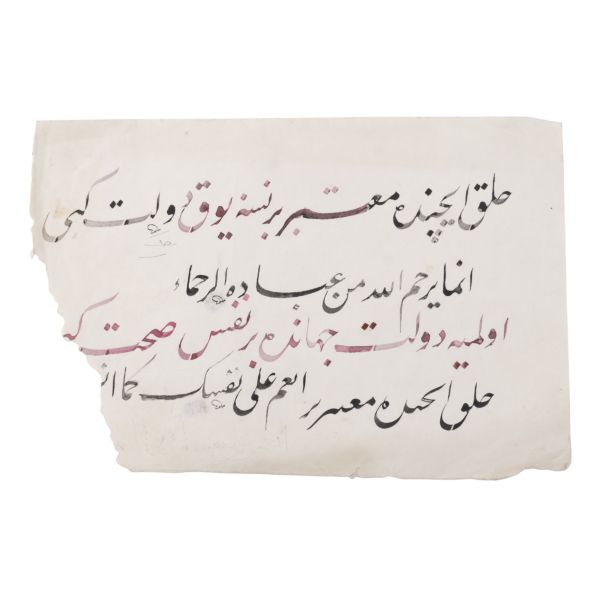 خلق ایچنده معتبر بر نسنه یوق دولت کبی
انما یرحم الله من عباده الرحماء
اولمیه دولت جهانده بر نفس صحت کبی
خلق ایچنده معتبر بر انعم علی نفسک کما